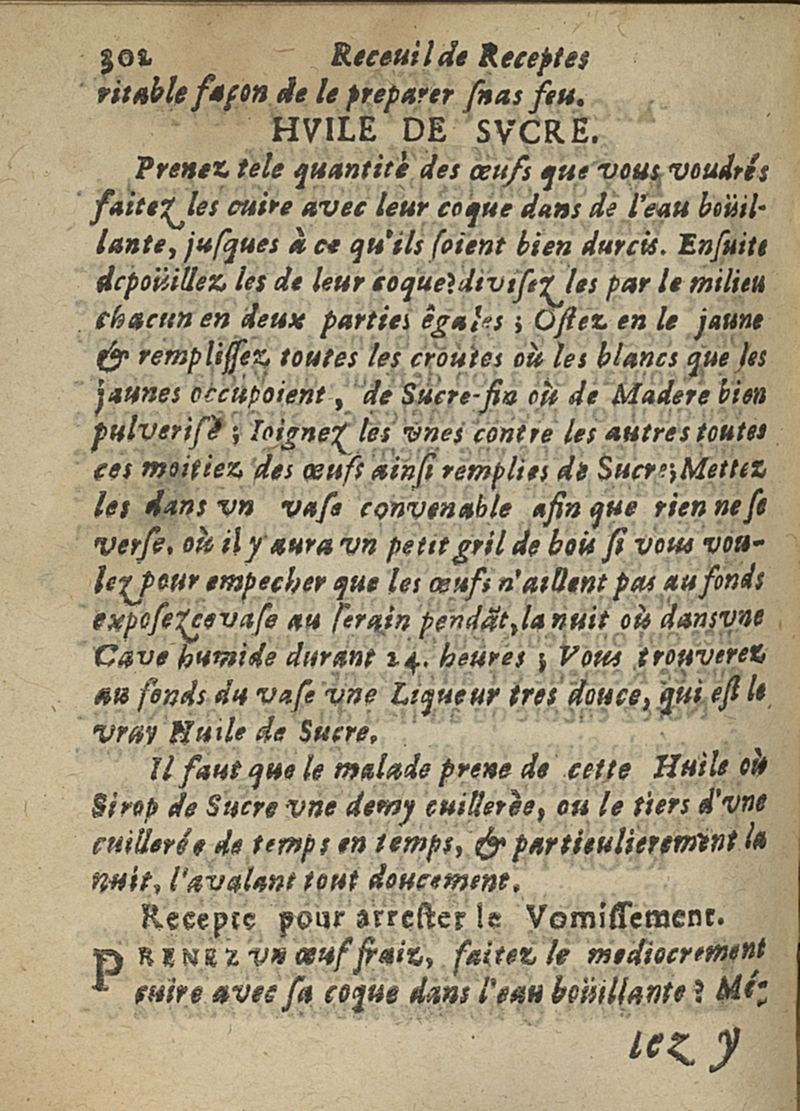 302 Receuil de Receptes
ritable façon de le preparer ſnas feu.
HVILE DE SVCRE.
Prenez tele quantitè des œufs que vous voudrés
faitez les cuire avec leur coque dans de l'eau boüil-
lante, juſques à ce qu'ils ſoient bien durcis. Enſuite
depoüillez les de leur coque? diviſez les par le milieu
chacun en deux parties êgales ; Oſtez en le jaune
& rempliſſez toutes les croutes où les blancs que les
jaunes occupoient, de Sucre-fin où de Madere bien
pulveriſè ; Ioignez les vnes contre les autres toutes
ces moitiez des œufs ainſi remplies de Sucre; Mettez
les dans vn vaſe convenable afin que rien ne ſe
verſe. où il y aura vn petit gril de bois ſi vous vou-
lez pour empecher que les œufs n'aillent pas au fonds
expoſez ce vaſe au ſerain pendãt, la nuit où dans vne
Cave humide durant 24. heures ; Vous trouverez
au fonds du vaſe vne Liqueur tres douce, qui eſt le
vray Huile de Sucre.
Il faut que le malade prene de cette Huile où
Sirop de Sucre vne demy cuillerèe, ou le tiers d'vne
cuillerée de temps en temps, & particulierement la
nuit, l'avalant tout doucement.
Recepte pour arreſter le Vomiſſement.
PRENEZ vn œuf fraiz, faitez le mediocrement
cuire avec ſa coque dans l'eau boüillante? Mé-
lez y